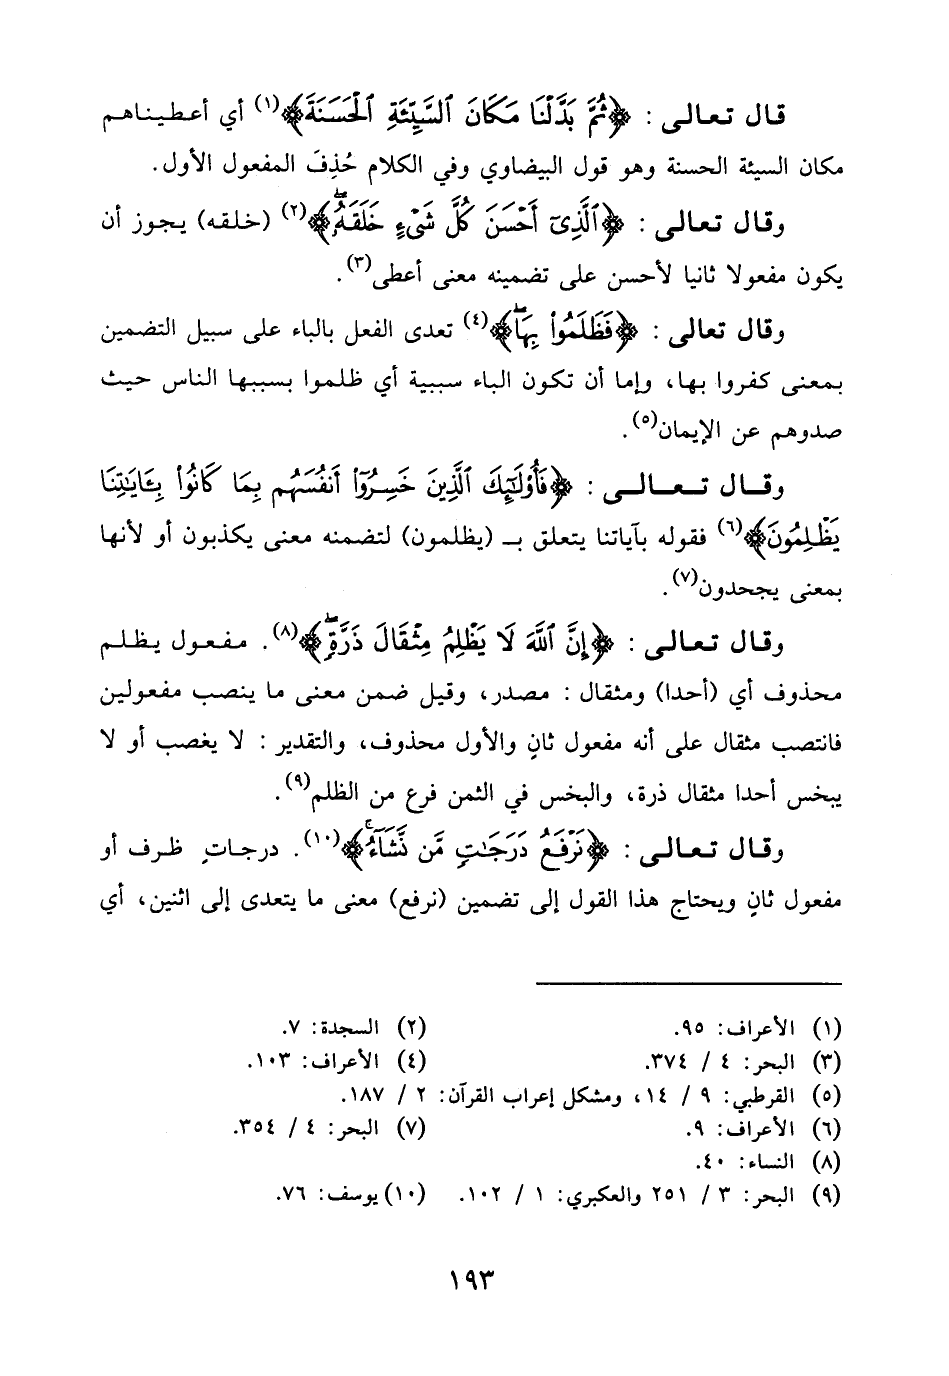 قال تعالى : ﴿ثُمَّ بَدَّلْنَا مَكَانَ ٱلسَّيِّئَةِ ٱلْحَسَنَةَ﴾(١) أي أعطيناهم
مكان السيئة الحسنة وهو قول البيضاوي وفي الكلام حُذِفَ المفعول الأول.
وقال تعالى : ﴿ٱلَّذِىٓ أَحْسَنَ كُلَّ شَىْءٍ خَلَقَهُۥ﴾(٢) (خلقه) يجوز أن
يكون مفعولا ثانيا لأحسن على تضمينه معنى أعطى(٣).
وقال تعالى : ﴿فَظَلَمُوا۟ بِهَا﴾(٤) تعدى الفعل بالباء على سبيل التضمين
بمعنى كفروا بها، وإما أن تكون الباء سببية أي ظلموا بسببها الناس حيث
صدوهم عن الإيمان(٥).
وقال تعالى : ﴿فَأُو۟لَـٰٓئِكَ ٱلَّذِينَ خَسِرُوٓا۟ أَنفُسَهُم بِمَا كَانُوا۟ بِـَٔايَـٰتِنَا
يَظْلِمُونَ﴾(٦) فقوله بآياتنا يتعلق بـ (يظلمون) لتضمنه معنى يكذبون أو لأنها
بمعنى يجحدون(٧).
وقال تعالى : ﴿إِنَّ ٱللَّهَ لَا يَظْلِمُ مِثْقَالَ ذَرَّةٍ﴾(٨). مفعول يظلم
محذوف أي (أحدا) ومثقال : مصدر، وقيل ضمن معنى ما ينصب مفعولين
فانتصب مثقال على أنه مفعول ثانٍ والأول محذوف، والتقدير : لا يغصب أو لا
يبخس أحدا مثقال ذرة، والبخس في الثمن فرع من الظلم(٩).
وقال تعالى : ﴿نَرْفَعُ دَرَجَـٰتٍ مَّن نَّشَآءُ﴾(١٠). درجاتٍ ظرف أو
مفعول ثانٍ ويحتاج هذا القول إلى تضمين (نرفع) معنى ما يتعدى إلى اثنين، أي
(١) الأعراف: ٩٥. (٢) السجدة: ٧.
(٣) البحر: ٤ / ٣٧٤. (٤) الأعراف: ١٠٣.
(٥) القرطبي: ٩ / ١٤، ومشكل إعراب القرآن: ٢ / ١٨٧.
(٦) الأعراف: ٩. (٧) البحر: ٤ / ٣٥٤.
(٨) النساء: ٤٠.
(٩) البحر: ٣ / ٢٥١ والعكبري: ١ / ١٠٢. (١٠) يوسف: ٧٦.
١٩٣